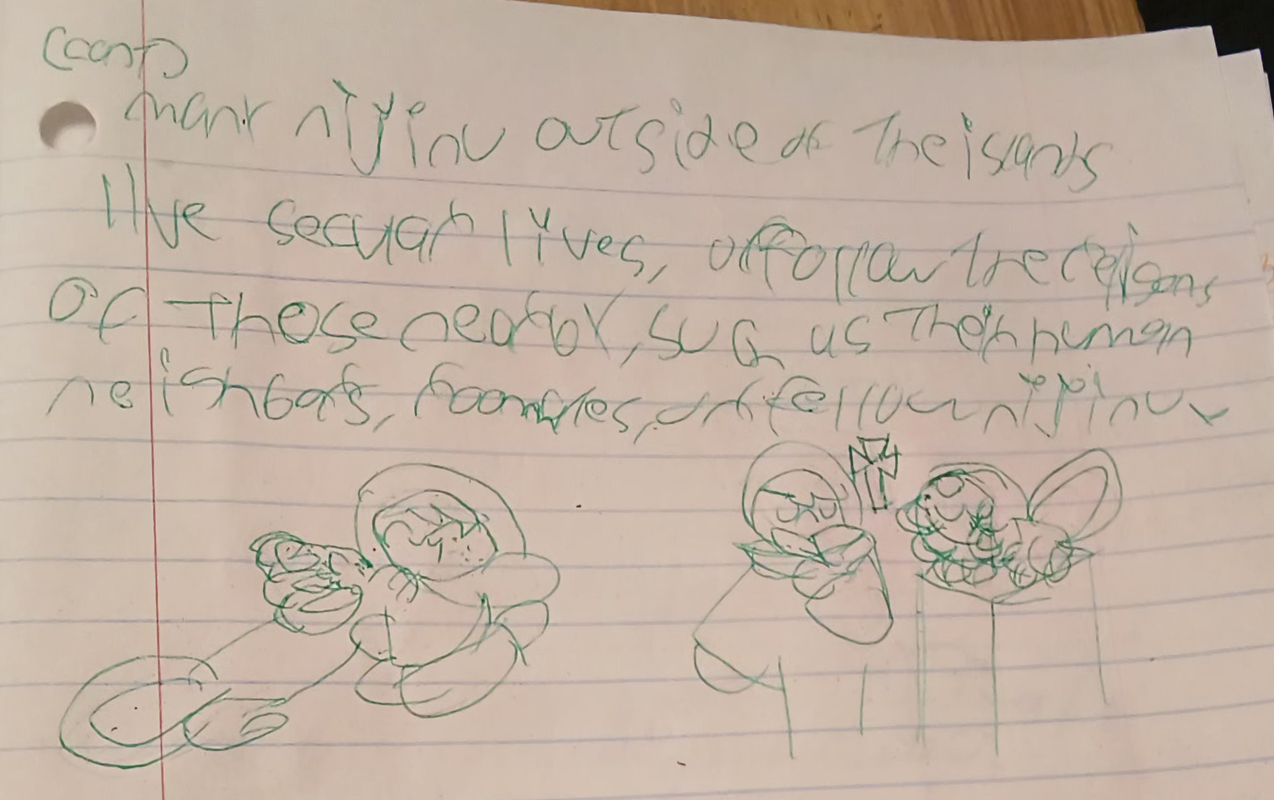 (cont)
many nijinu outside of the islands
live secular lives, or follow the religions
of those nearby, such as their human
neighbors, families, or fellow nijinu.